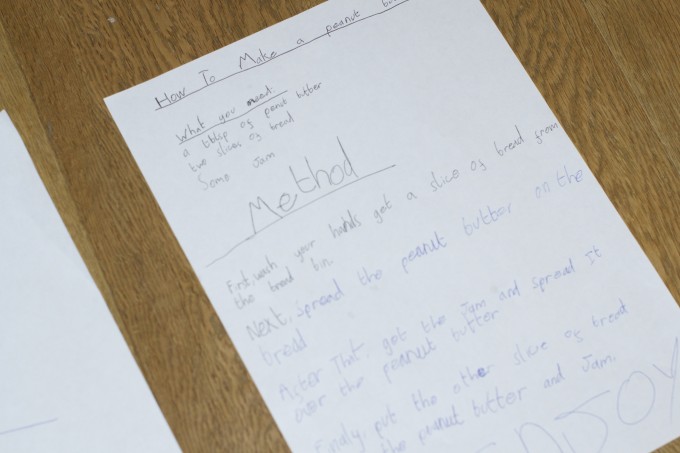 How To Make a peanut
What you need:
a tblsp of penut butter
two slices of bread
Some Jam
Method
First, wash your hands get a slice of bread from
the bread bin.
Next, spread the peanut butter on the
bread
After That, get the Jam and spread It
over the peanut butter
Finaly, put the other slice of bread
the peanut butter and Jam.
ENJOY